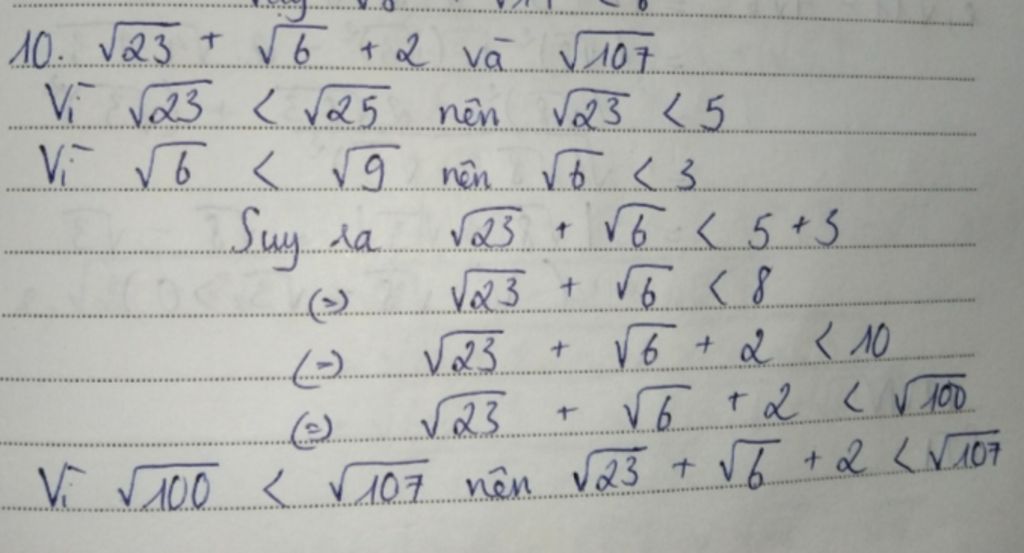 10. √23 + √6 + 2 và √107
Vì √23 < √25 nên √23 < 5
Vì √6 < √9 nên √6 < 3
Suy ra √23 + √6 < 5 + 3
(=) √23 + √6 < 8
(=) √23 + √6 + 2 < 10
(=) √23 + √6 + 2 < √100
Vì √100 < √107 nên √23 + √6 + 2 < √107